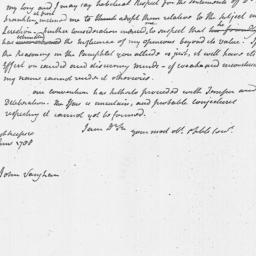 my love and I may say habitual respect for the sentiments of D
Franklin, inclined me to adopt them relative to the subject in
question. further consideration induced to suspect that
has the influence of my opinions beyond its value. If
the Reasoning in the Pamphlet you allude to is just, it will have its
Effect on candid and discerning minds - if weak and inconclusive
my name cannot render it otherwise.
our convention has hitherto proceeded with Temper and
Deliberation. the Issue is uncertain, and probable conjectures
respecting it cannot yet be formed.
I am Dr Sir your most obt. & hble Servt.
ghkeepsie
June 1788
John Vaughan